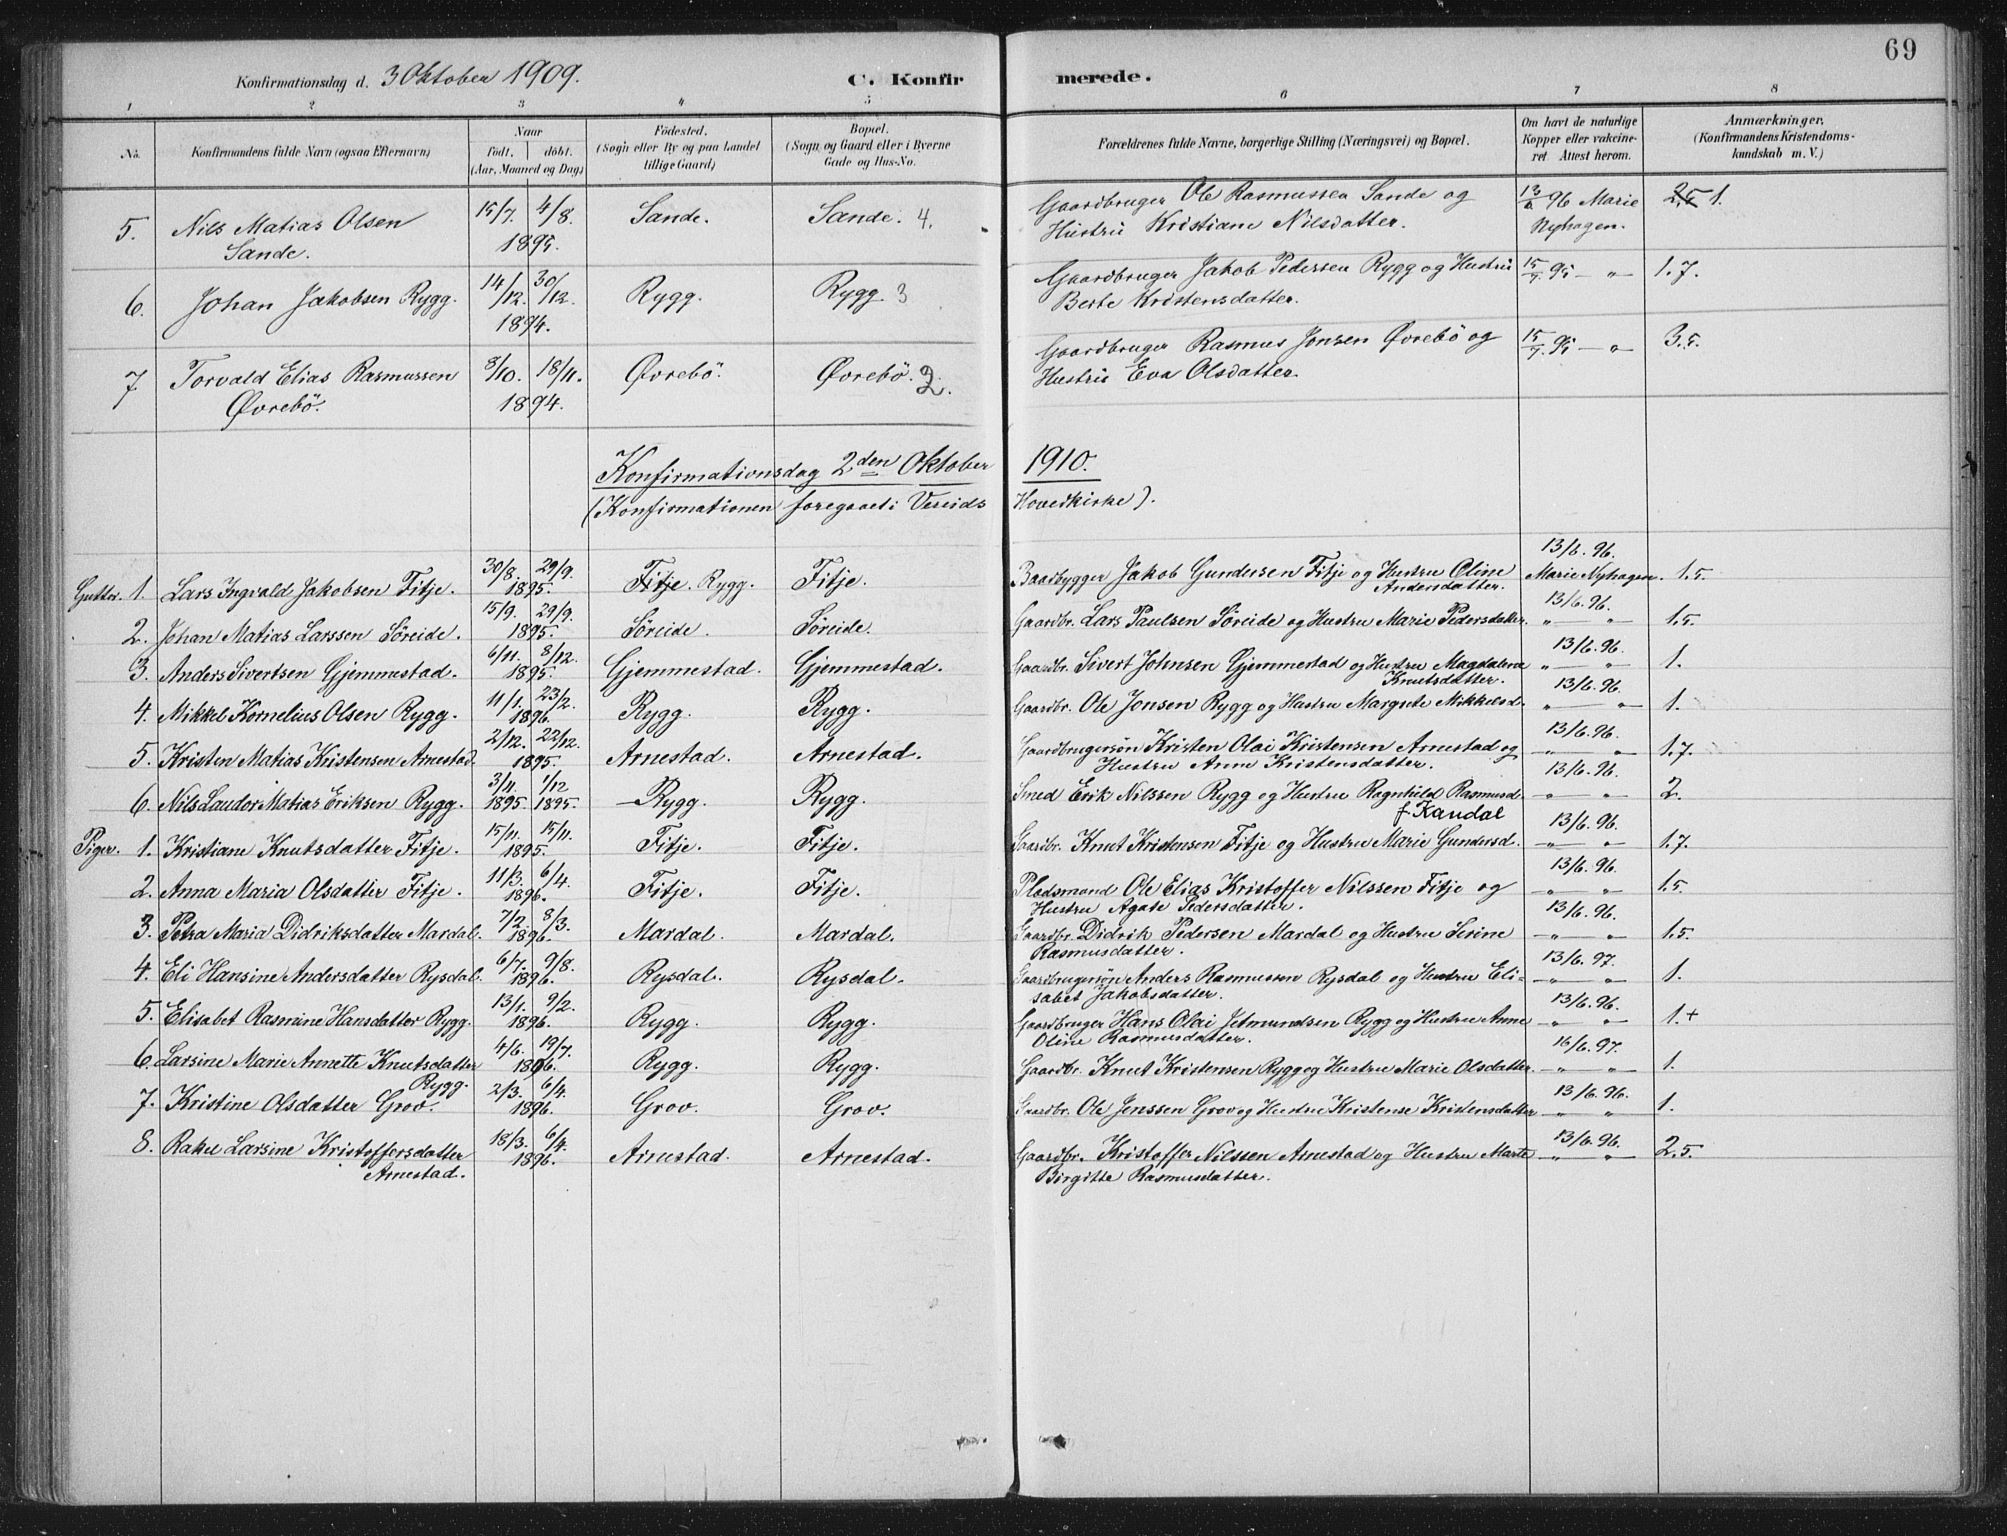 69
Konfirmationsdag d. 3 Oktober 1909. C. Konfirmerede.
1 2 3 4 5 6 7 8
No. Konfirmandens fulde Navn (ogsaa Efternavn) Naar født, døbt. (Aar, Maaned og Dag) Fødested. (Sogn eller By og paa Landet tillige Gaard) Bopæl. (Sogn og Gaard eller i Byerne Gade og Hus-No. Forældrenes fulde Navne, borgerlige Stilling (Næringsvei) og Bopæl. Om havt de naturlige Kopper eller vakcineret Attest herom. Anmærkninger. (Konfirmandens Kristendomskundskab m. V.)
5. Nils Matias Olsen 15/7. 4/8. Sande. Sande. 4. Gaardbruger Ole Rasmussen Sande og 13/6 96 Marie 2,5 1.
Sande. 1895. Hustru Kristiane Nilsdatter. Nyhagen.
6. Johan Jakobsen Rygg. 14/12. 30/12. Rygg. Rygg. 3 Gaardbruger Jakob Pedersen Rygg og Hustru 15/7 95 — " 1.7.
1894. Berte Kristensdatter.
7. Torvald Elias Rasmussen 8/10. 18/11. Øvrebö. Øvrebö. 2. Gaardbruger Rasmus Jonsen Øvrebö og 15/7 95 — " 3.5.
Øvrebö. 1894. Hustru Eva Olsdatter.
Konfirmationsdag 2den Oktober 1910.
(Konfirmationen foregaaet i Vereids Hovedkirke).
Gutter. 1. Lars Ingvald Jakobsen Fitje. 30/8. 29/9. 1895. Fitje. Rygg. Fitje. Baadbygger Jakob Gundersen Fitje og Hustru Oline 13/6. 96. Marie Nyhagen. 1.5.
Andersdatter.
2. Johan Matias Larssen Søreide. 15/9. 29/9. 1895. Søreide. Søreide. Gaardbr. Lars Paulsen Søreide og Hustru Marie Pedersdatter. 13/6. 96. " — " 1.5.
3. Anders Sivertsen Gjemmestad. 6/11. 8/12. 1895. Gjemmestad. Gjemmestad. Gaardbr. Sivert Johnsen Gjemmestad og Hustru Magdalena 13/6. 96. " — " 1.
Knutsdatter.
4. Mikkel Kornelius Olsen Rygg. 11/1. 23/2. 1896. Rygg. Rygg. Gaardbr. Ole Jonsen Rygg og Hustru Margrete Mikkelsd. 13/6. 96. " — " 1.
5. Kristen Matias Kristensen Arnestad. 2/12. 22/12. 1895. Arnestad. Arnestad. Gaardbrugersøn Kristen Olai Kristensen Arnestad og 13/6. 96. " — " 1.7.
Hustru Anne Kristensdatter.
6. Nils Laudor Matias Eriksen Rygg. 3/11. 1/12 1895. 1895. Rygg. Rygg. Smed Erik Nilssen Rygg og Hustru Ragnhild Rasmusd. 13/6. 96. " — " 2.
f Kandal
Piger. 1. Kristiane Knutsdatter Fitje. 15/11. 15/11. 1895. Fitje. Fitje. Gaardbr. Knut Kristensen Fitje og Hustru Marie Gundersd. 13/6. 96. " — " 1.7.
2. Anna Maria Olsdatter Fitje. 11/3. 6/4. 1896. Fitje. Fitje. Pladsmand Ole Elias Kristoffer Nilssen Fitje og 13/6. 96. " — " 1.5.
Hustru Agate Pedersdatter.
3. Petra Maria Didriksdatter Mardal. 7/2. 8/3. 1896. Mardal. Mardal. Gaardbr. Didrik Pedersen Mardal og Hustru Serine 13/6. 96. " — " 1.5.
Rasmusdatter.
4. Eli Hansine Andersdatter Rysdal. 6/7. 9/8. 1896. Rysdal. Rysdal. Gaardbrugersøn Anders Rasmussen Rysdal og Hustru Eli- 13/6. 97. " — " 1.
sabet Jakobsdatter.
5. Elisabet Rasmine Hansdatter Rygg. 13/1. 9/2. 1896. Rygg. Rygg. Gaardbruger Hans Olai Jetmundsen Rygg og Hustru Anne 13/6. 96. " — " 1.+
Oline Rasmusdatter.
6. Larsine Marie Annette Knutsdatter 4/6. 19/7. 1896. Rygg. Rygg. Gaardbr. Knut Kristensen Rygg og Hustru Marie Olsdatter. 16/6. 97. " — " 1.
Rygg.
7. Kristine Olsdatter Grov. 2/3. 6/4. 1896. Grov. Grov. Gaardbr. Ole Jenssen Grov og Hustru Kristense Kristensdatter 13/6. 96. " — " 1.
8. Rakel Larsine Kristoffersdatter 18/3. 6/4. 1896. Arnestad. Arnestad. Gaardbr. Kristoffer Nilssen Arnestad og Hustru Marte 13/6. 96. " — " 2.5.
Arnestad. Birgitte Rasmusdatter.